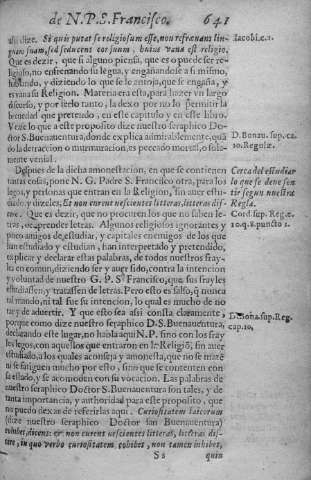 de N. P. S. Francisco. 641
assi dize. Si quis putat se religiosum esse, non refrænans lin-
guam suam, sed seducens cor suum, huius vana est religio.
Que es dezir, que si alguno piensa, que es o puede ser re-
ligioso, no enfrenando su legua, y engañandose a si mismo,
hablando, y diziendo lo que se le antoja, que se engaña, y
es vana su Religion. Materia era esto, para hazer vn largo
discurso, y por serlo tanto, la dexo por no lo permitir la
brevedad que pretendo, en este capitulo y en este libro.
Vease lo que a este proposito dize nuestro seraphico Doctor
S. Buenauentura, donde explica admirablemente, quã
do la detraccion o murmuracion, es peccado mortal, o sola-
mente venial.
Despues de la dicha amonestacion, en que se contienen
tantas cosas, pone N. G. Padre S. Francisco otra, para los
legos, y personas que entran en la Religion, sin auer estu-
diado, y dizeles, Et non curent nescientes litteras, litteras dis-
cere. Que es dezir, que no procuren los que no saben le-
tras, de aprender letras. Algunos religiosos ignorantes y
poco amigos de estudiar, y capitales enemigos de los que
han estudiado y estudian, han interpretado y pretendido,
explicar y declarar estas palabras, de todos nuestros fray-
les en comun, diziendo ser y auer sido, contra la intencion
y voluntad de nuestro G. P. S. Francisco, que sus frayles
estudiassen, y tratassen de letras. Pero esto es falso, q nunca
tal mando, ni tal fue su intencion, lo qual es mucho de no
tar y de aduertir. Y que esto sea assi consta claramente,
porque como dize nuestro seraphico D. S. Buenauentura,
declarando este lugar, no habla aqui N. P. sino con los fray
les legos, con aquellos que entraron en la Religiõ, sin auer
estudiado, a los quales aconseja y amonesta, que no se matẽ
ni se fatiguen mucho por esto, sino que se contenten con
su estado, y se acomoden con su vocacion. Las palabras de
nuestro seraphico Doctor S. Buenauentura son tales, y de
tanta importancia, y authoridad para este proposito, que
no puedo dexar de referirlas aqui. Curiositatem laicorum
(dize nuestro seraphico Doctor san Buenauentura)
cohibet, dicens: et non curent nescientes litteras, litteras dis-
cere, in quo verbo curiositatem cohibet, non tamen inhibet,
Ss quin
Iacobi.c.1.
D. Bonau. sup. ca.
10. Regulæ.
Cerca del estudiar
lo que se deue sen
tir segun nuestra
Regla.
Cord. sup. Regæ.
10. q. 1. puncto 1.
D. Bona. sup. Reg.
cap. 10.